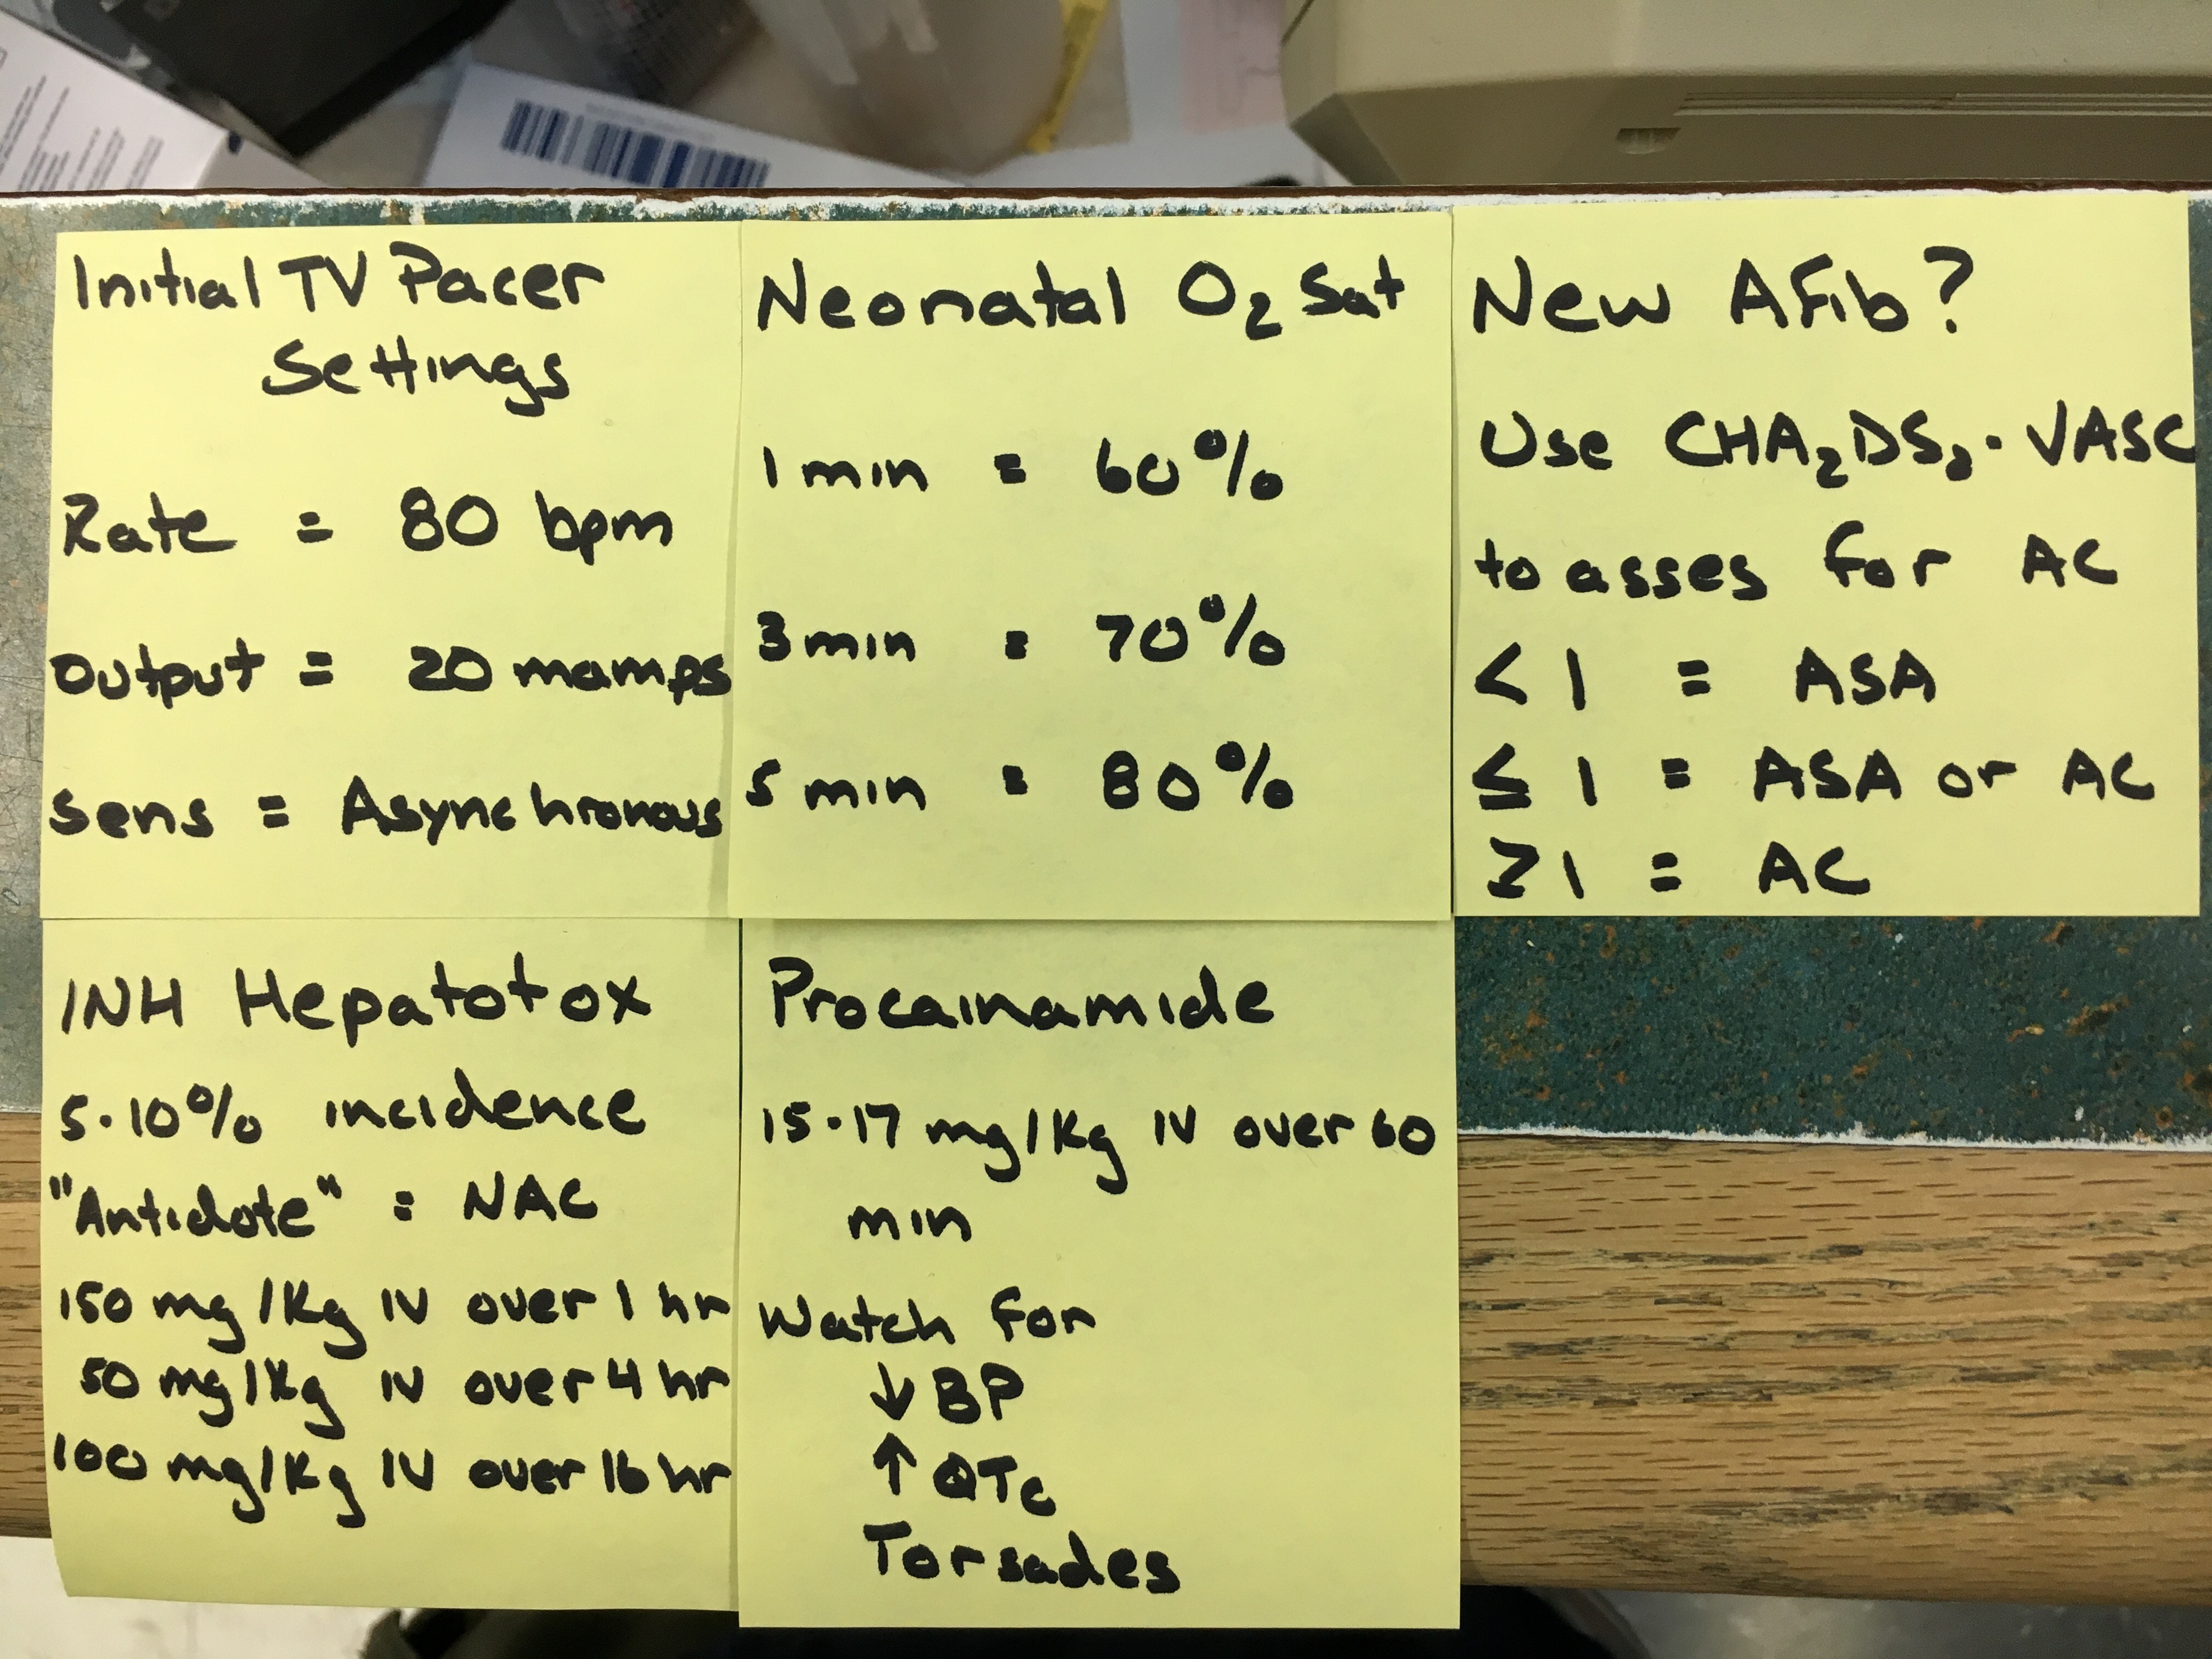 Initial TV Pacer
Settings
Rate = 80 bpm
Output = 20 mamps
Sens = Asynchronous
Neonatal O₂ Sat
1 min = 60%
3 min = 70%
5 min = 80%
New Afib?
Use CHA₂DS₂-VASC
to asses for AC
< 1 = ASA
≤ 1 = ASA or AC
≥ 1 = AC
INH Hepatotox
5-10% incidence
"Antidote" = NAC
150 mg/Kg IV over 1 hr
50 mg/Kg IV over 4 hr
100 mg/Kg IV over 16 hr
Procainamide
15-17 mg/Kg IV over 60
min
Watch for
↓ BP
↑ QTc
Torsades